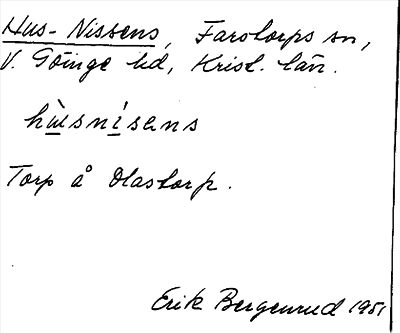 Hus-Nissens, Farstorps sn,
V. Göinge hd, Krist. län.
hùsnísens
Torp å Olastorp.
Erik Bergenrud 1951